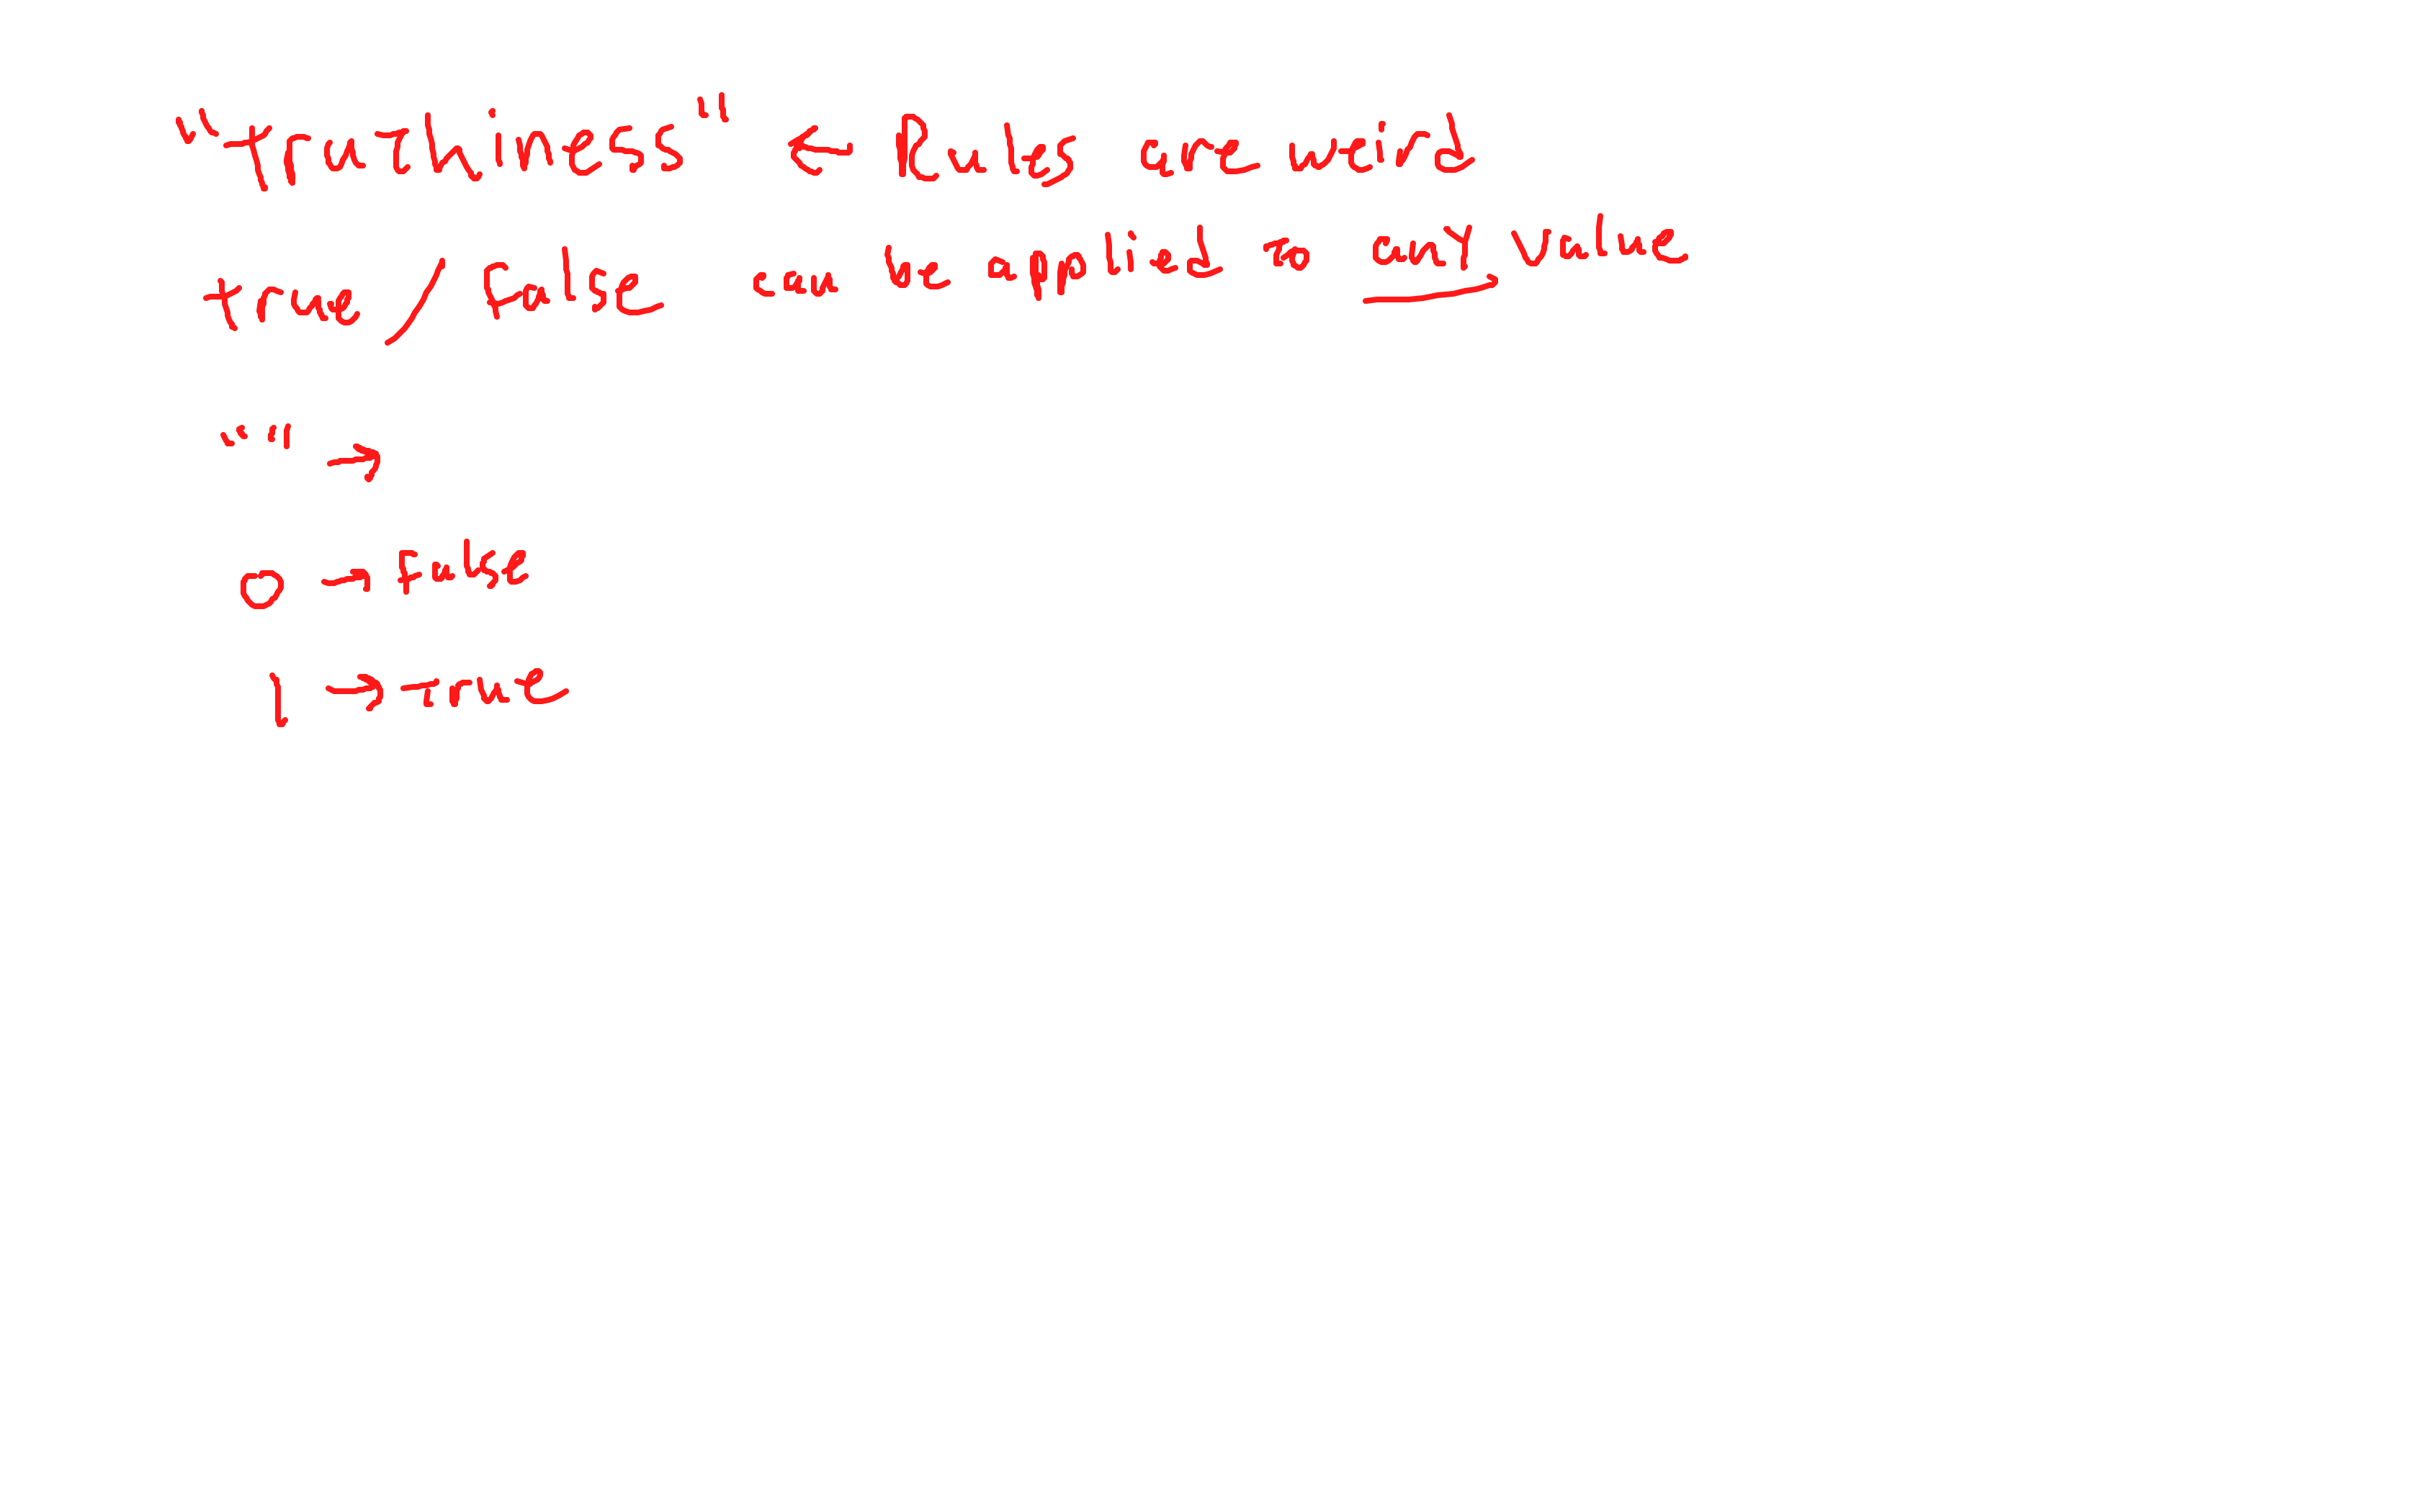 "truthiness" ← Rules are weird
true / false can be applied to any value
"" →
0 → False
1 → True